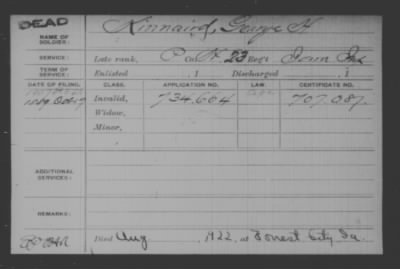 DEAD
NAME OF SOLDIER: Kinnaird, George H
SERVICE: Late rank, P Co. H, 23 Reg't Iowa Inf
TERM OF SERVICE: Enlisted , 1 Discharged , 1
DATE OF FILING. CLASS. APPLICATION NO. LAW. CERTIFICATE NO.
1889 Oct 7 Invalid, 734.604 707.087.
Widow,
Minor,
ADDITIONAL SERVICES:
REMARKS:
Died Aug , 1922, at Forrest City Ia.